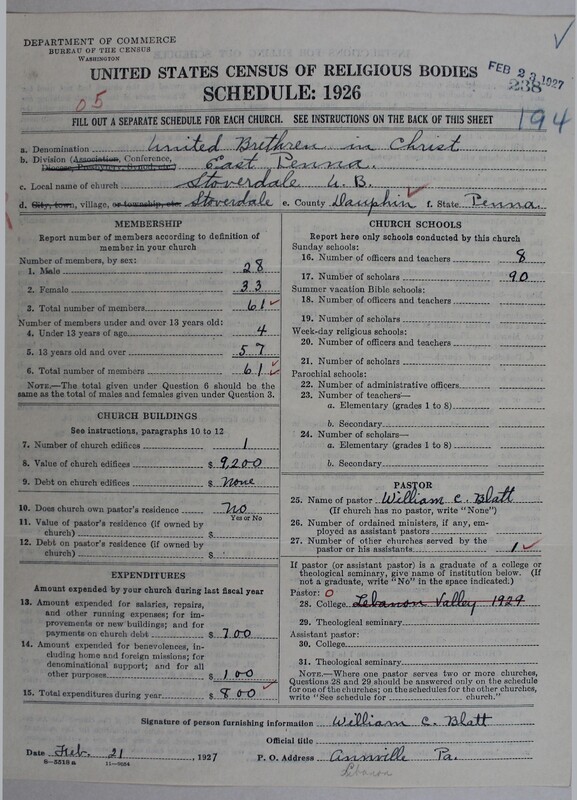 DEPARTMENT OF COMMERCE
BUREAU OF THE CENSUS
WASHINGTON
UNITED STATES CENSUS OF RELIGIOUS BODIES
SCHEDULE: 1926
FEB 23 1927
238
05
194
FILL OUT A SEPARATE SCHEDULE FOR EACH CHURCH. SEE INSTRUCTIONS ON THE BACK OF THIS SHEET
a. Denomination United Brethren in Christ
b. Division (Association, Conference, East Penna.
c. Local name of church Stoverdale U.B.
d. City, town, village, or township, etc. Stoverdale e. County Dauphin f. State Penna.
MEMBERSHIP
Report number of members according to definition of
member in your church
Number of members, by sex:
1. Male 28
2. Female 33
3. Total number of members 61
Number of members under and over 13 years old:
4. Under 13 years of age 4
5. 13 years old and over 57
6. Total number of members 61
NOTE.—The total given under Question 6 should be
same as the total of males and females given under Question 3.
CHURCH BUILDINGS
See instructions, paragraphs 10 to 12
7. Number of church edifices 1
8. Value of church edifices $ 9,200
9. Debt on church edifices $ None
10. Does church own pastor's residence? No
Yes or No
11. Value of pastor's residence (if owned by
church) $
12. Debt on pastor's residence (if owned by
church) $
EXPENDITURES
Amount expended by your church during last fiscal year
13. Amount expended for salaries, repairs,
and other running expenses; for im-
provements or new buildings; and for
payments on church debt $ 700
14. Amount expended for benevolences, in-
cluding home and foreign missions; for
denominational support; and for all
other purposes $ 100
15. Total expenditures during year $ 800
CHURCH SCHOOLS
Report here only schools conducted by this church
Sunday schools:
16. Number of officers and teachers 8
17. Number of scholars 90
Summer vacation Bible schools:
18. Number of officers and teachers
19. Number of scholars
Week-day religious schools:
20. Number of officers and teachers
21. Number of scholars
Parochial schools:
22. Number of administrative officers
23. Number of teachers—
a. Elementary (grades 1 to 8)
b. Secondary
24. Number of scholars—
a. Elementary (grades 1 to 8)
b. Secondary
PASTOR
25. Name of pastor William C. Blatt
(If church has no pastor, write "None")
26. Number of ordained ministers, if any, em-
ployed as assistant pastors
27. Number of other churches served by the
pastor or his assistants 1
If pastor (or assistant pastor) is a graduate of a college or
theological seminary, give name of institution below. (If
not a graduate, write "No" in the space indicated.)
Pastor: 0
28. College Lebanon Valley 1929
29. Theological seminary
Assistant pastor:
30. College
31. Theological seminary
NOTE.—Where one pastor serves two or more churches,
Questions 28 and 29 should be answered only on the schedule
for one of the churches; on the schedules for the other churches,
write "See schedule for church."
Signature of person furnishing information William C. Blatt
Official title
Date Feb. 21, 1927 P. O. Address Annville Pa.
Lebanon
8-5518a 11-9684